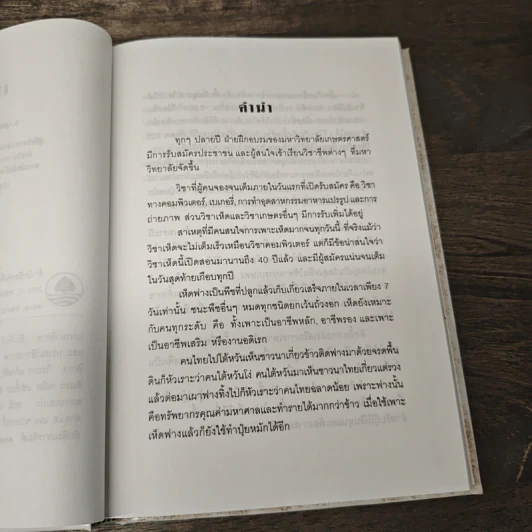 คำนำ
ทุกๆ ปลายปี ฝ่ายฝึกอบรมของมหาวิทยาลัยเกษตรศาสตร์
มีการรับสมัครประชาชน และผู้สนใจเข้าเรียนวิชาชีพต่างๆ ที่มหา
วิทยาลัยจัดขึ้น
วิชาที่ผู้คนจองจนเต็มภายในวันแรกที่เปิดรับสมัคร คือ วิชา
ทางคอมพิวเตอร์, เบเกอรี่, การทำอุตสาหกรรมอาหารแปรรูป และการ
ถ่ายภาพ ส่วนวิชาเห็ดและวิชาเกษตรอื่นๆ มีการรับเพิ่มได้อยู่
สาเหตุที่มีคนสนใจการเพาะเห็ดมากจนทุกวันนี้ ที่จริงแม้ว่า
วิชาเห็ดจะไม่เต็มเร็วเหมือนวิชาคอมพิวเตอร์ แต่ก็มีข้อน่าสนใจว่า
วิชาเห็ดนี้เปิดสอนมานานถึง 40 ปีแล้ว และมีผู้สมัครแน่นจนเต็ม
ในวันสุดท้ายเกือบทุกปี
เห็ดฟางเป็นพืชที่ปลูกแล้วเก็บเกี่ยวเสร็จภายในเวลาเพียง 7
วันเท่านั้น ชนะพืชอื่นๆ หมดทุกชนิดยกเว้นถั่วงอก เห็ดยังเหมาะ
กับคนทุกระดับ คือ ทั้งเพาะเป็นอาชีพหลัก, อาชีพรอง และเพาะ
เป็นอาชีพเสริม หรืองานอดิเรก
คนไทยไปไต้หวันเห็นชาวนาเกี่ยวข้าวติดฟางมาด้วยจรดพื้น
ดินก็หัวเราะว่าคนไต้หวันโง่ คนไต้หวันมาเห็นชาวนาไทยเกี่ยวแต่รวง
แล้วต่อมาเผาฟางทิ้งไปก็หัวเราะว่าคนไทยฉลาดน้อย เพราะฟางนั้น
คือทรัพยากรคุณค่ามหาศาลและทำรายได้มากกว่าข้าว เมื่อใช้เพาะ
เห็ดฟางแล้วก็ยังใช้ทำปุ๋ยหมักได้อีก